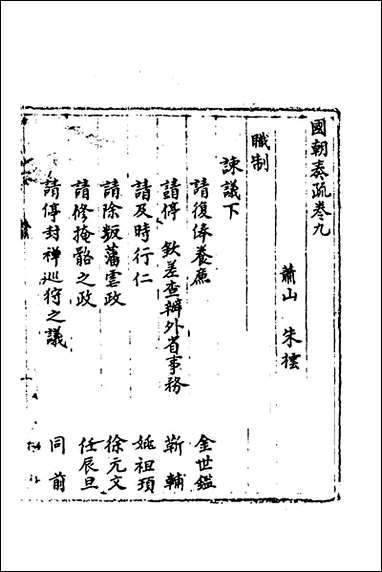 國朝奏疏卷九
蕭山 朱橒
職制
諫議下
請復俸養廉 金世鑑
請停 欽差查辦外省事務 靳輔
請及時行仁 姚祖頊
請除叛藩虐政 徐元文
請修掩骼之政 任辰旦
請停封禪巡狩之議 同前